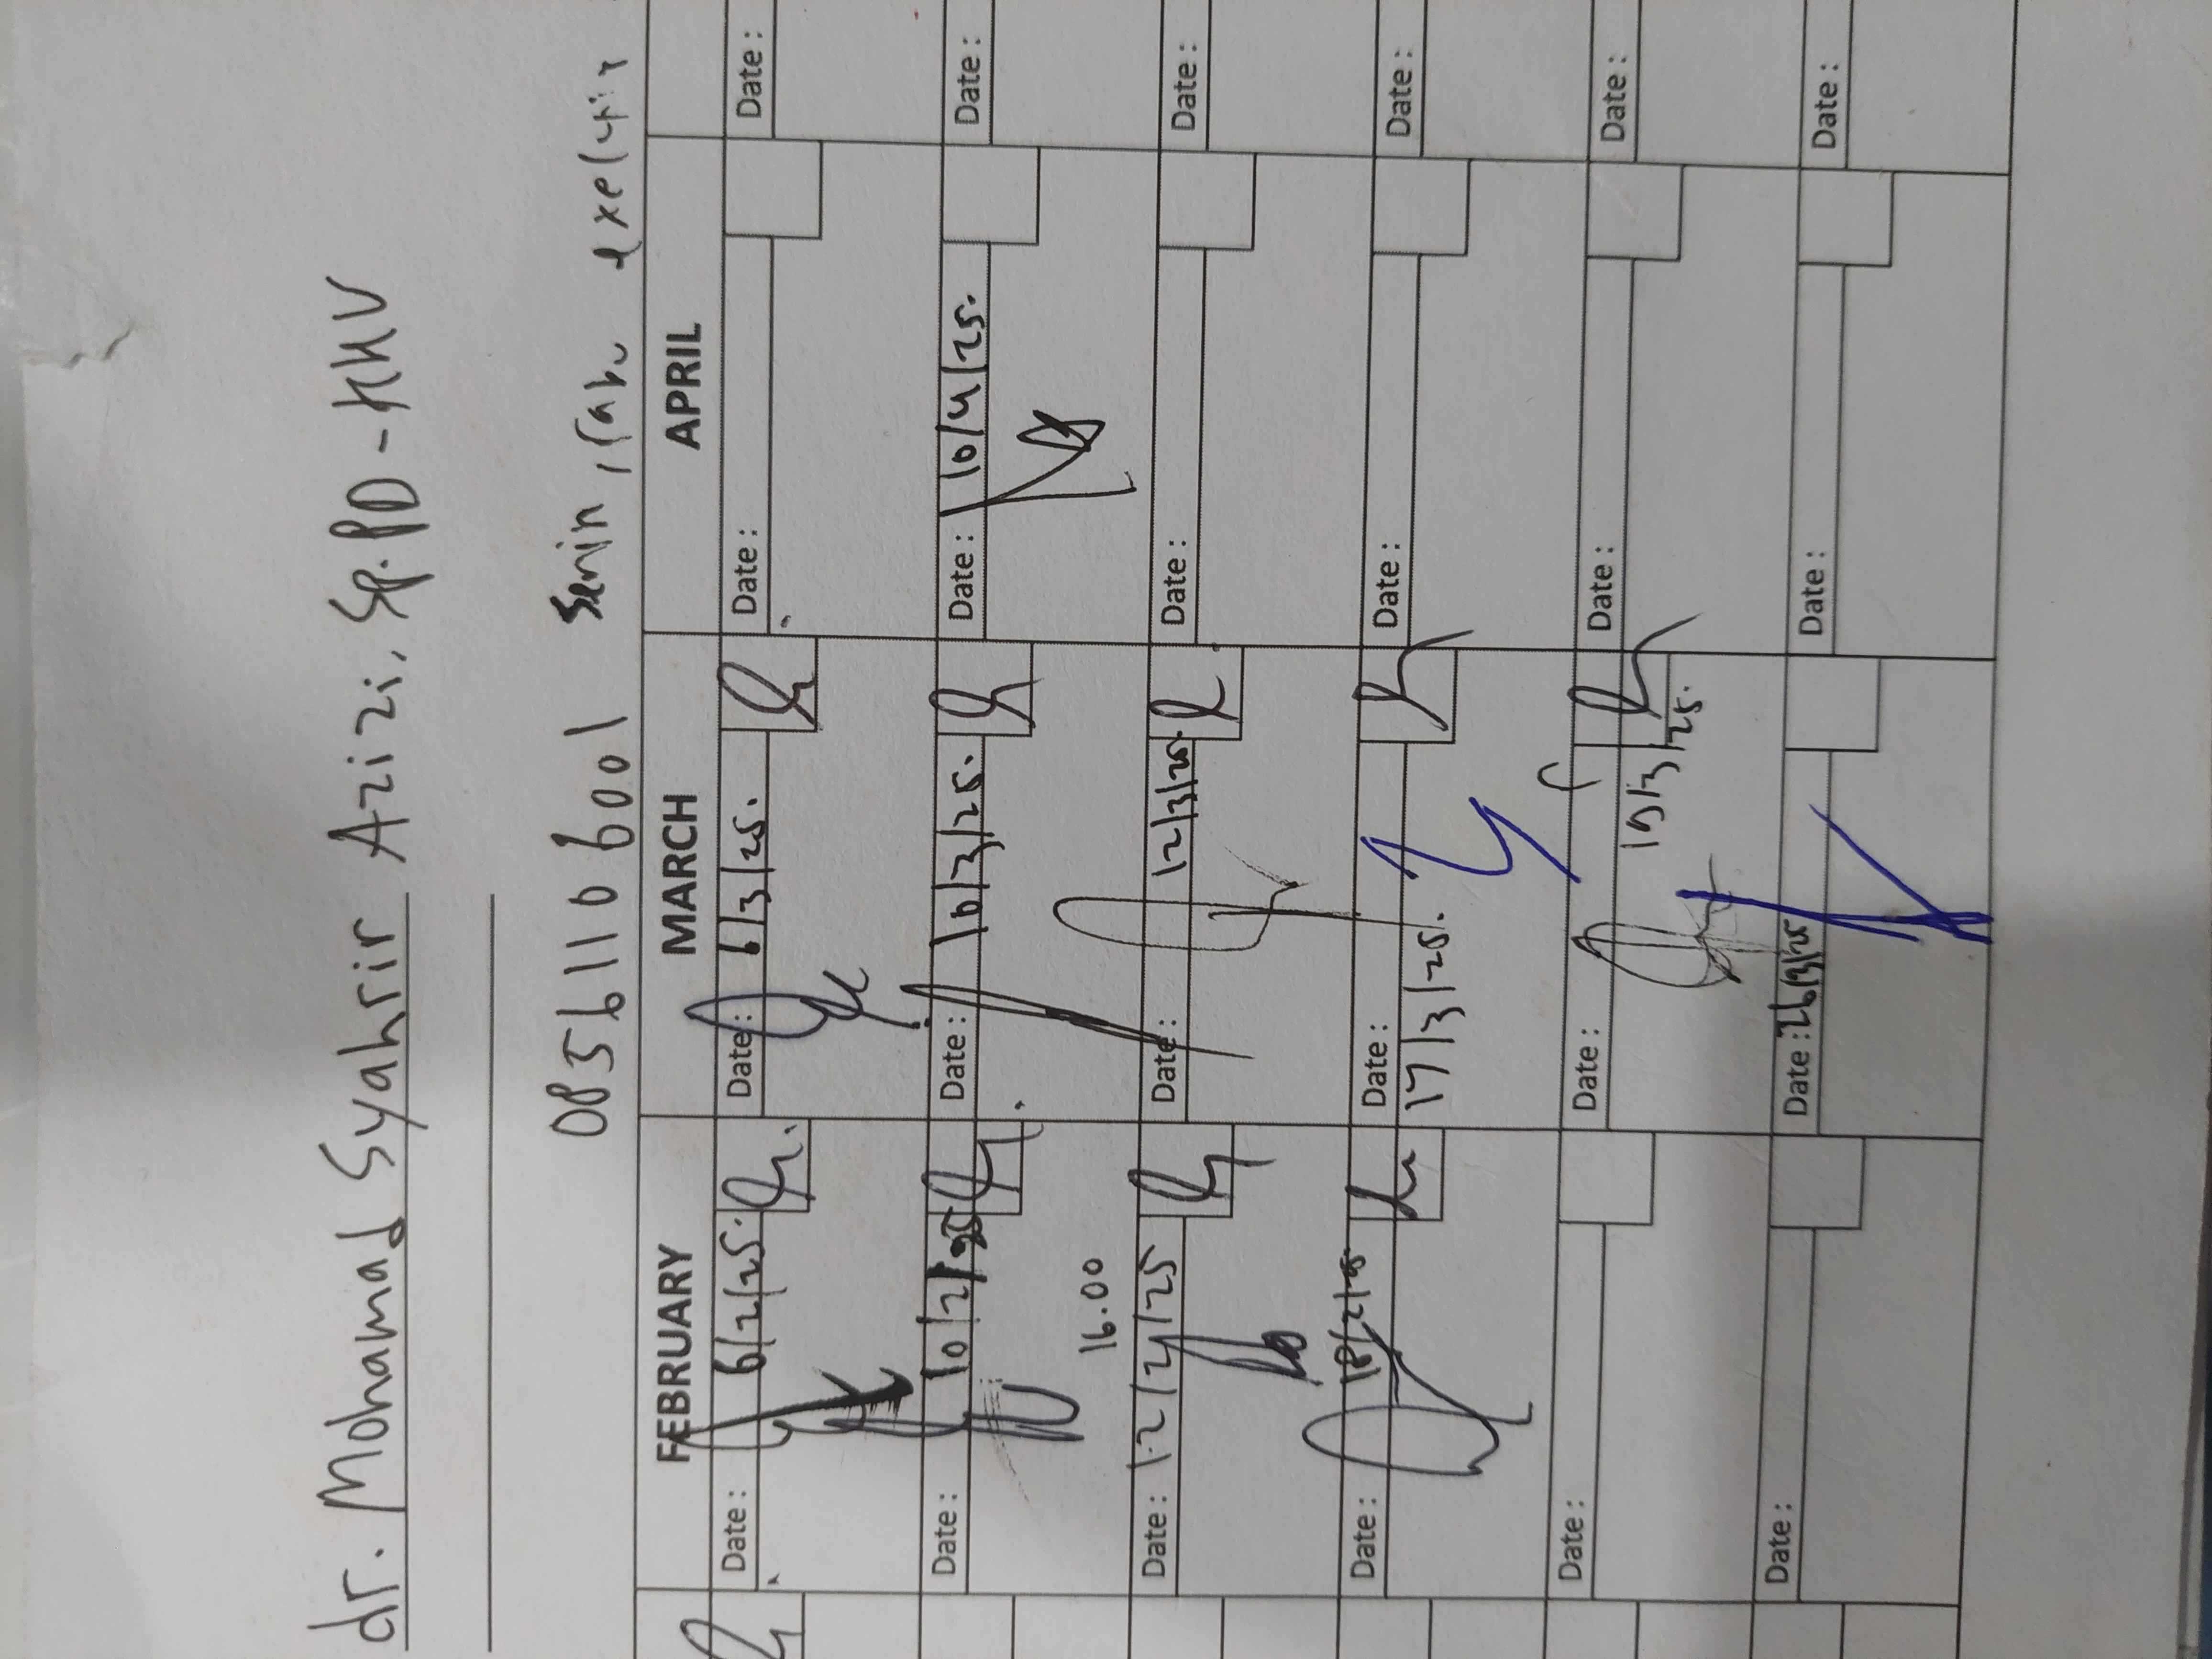 dr. Mohamad Syahrir Azizi, Sp.PD-KHV
08561106001 Senin, rabu
FEBRUARY MARCH APRIL
Date: 6/2/25. Date: 6/3/25. Date: Date:
Date: 10/2/25 Date: 10/3/25. Date: 10/4/25. Date:
16.00
Date: 12/2/25 Date: 12/3/25. Date: Date:
Date: 18/2/25 Date: Date: Date:
17/3/25.
Date: Date: Date: Date:
19/3/25.
Date: Date: 26/3/25 Date: Date: